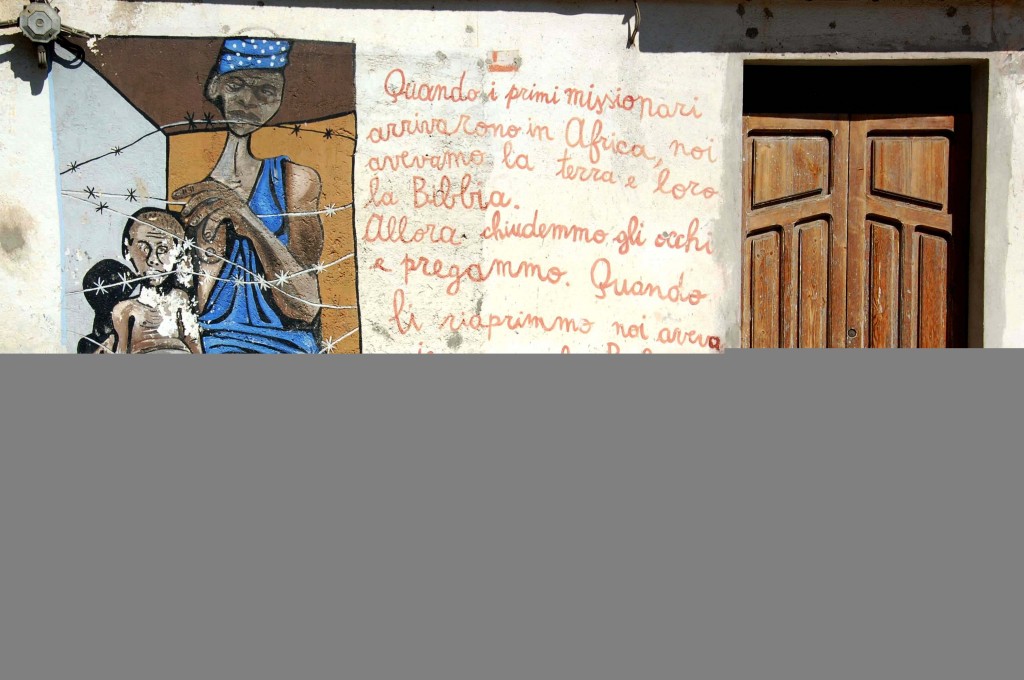 Quando i primi missionari
arrivarono in Africa, noi
avevamo la terra e loro
la Bibbia.
Allora chiudemmo gli occhi
e pregammo. Quando
li riaprimmo noi aveva